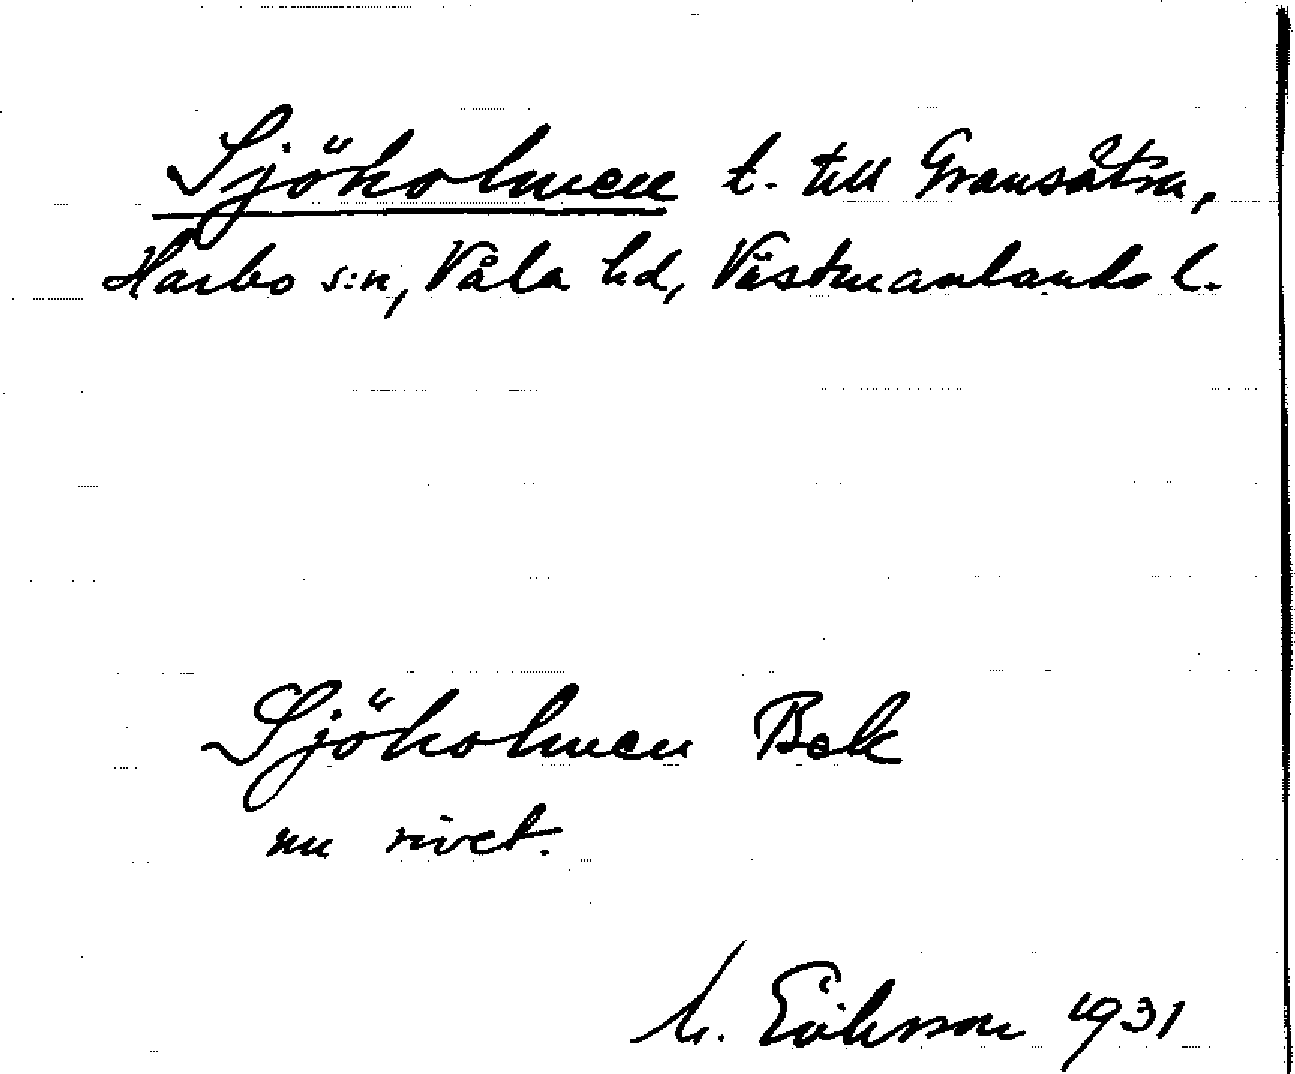 Sjöholmen t. till Gransätra,
Harbo s:n, Våla hd, Västmanlands l.
Sjöholmen Bek
nu rivet.
M. Eriksson 1931